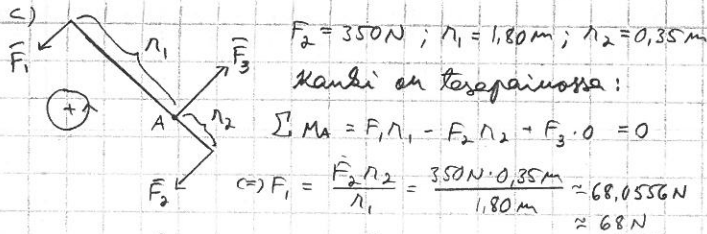 c)
F̄₁ r₁ F̄₃ A r₂ F̄₂ +
F₂ = 350 N ; r₁ = 1,80 m ; r₂ = 0,35 m
Kanki on tasapainossa :
∑ M_A = F₁ r₁ - F₂ r₂ + F₃ · 0 = 0
(=) F₁ = F₂ r₂ / r₁ = 350 N · 0,35 m / 1,80 m ≈ 68,0556 N
≈ 68 N